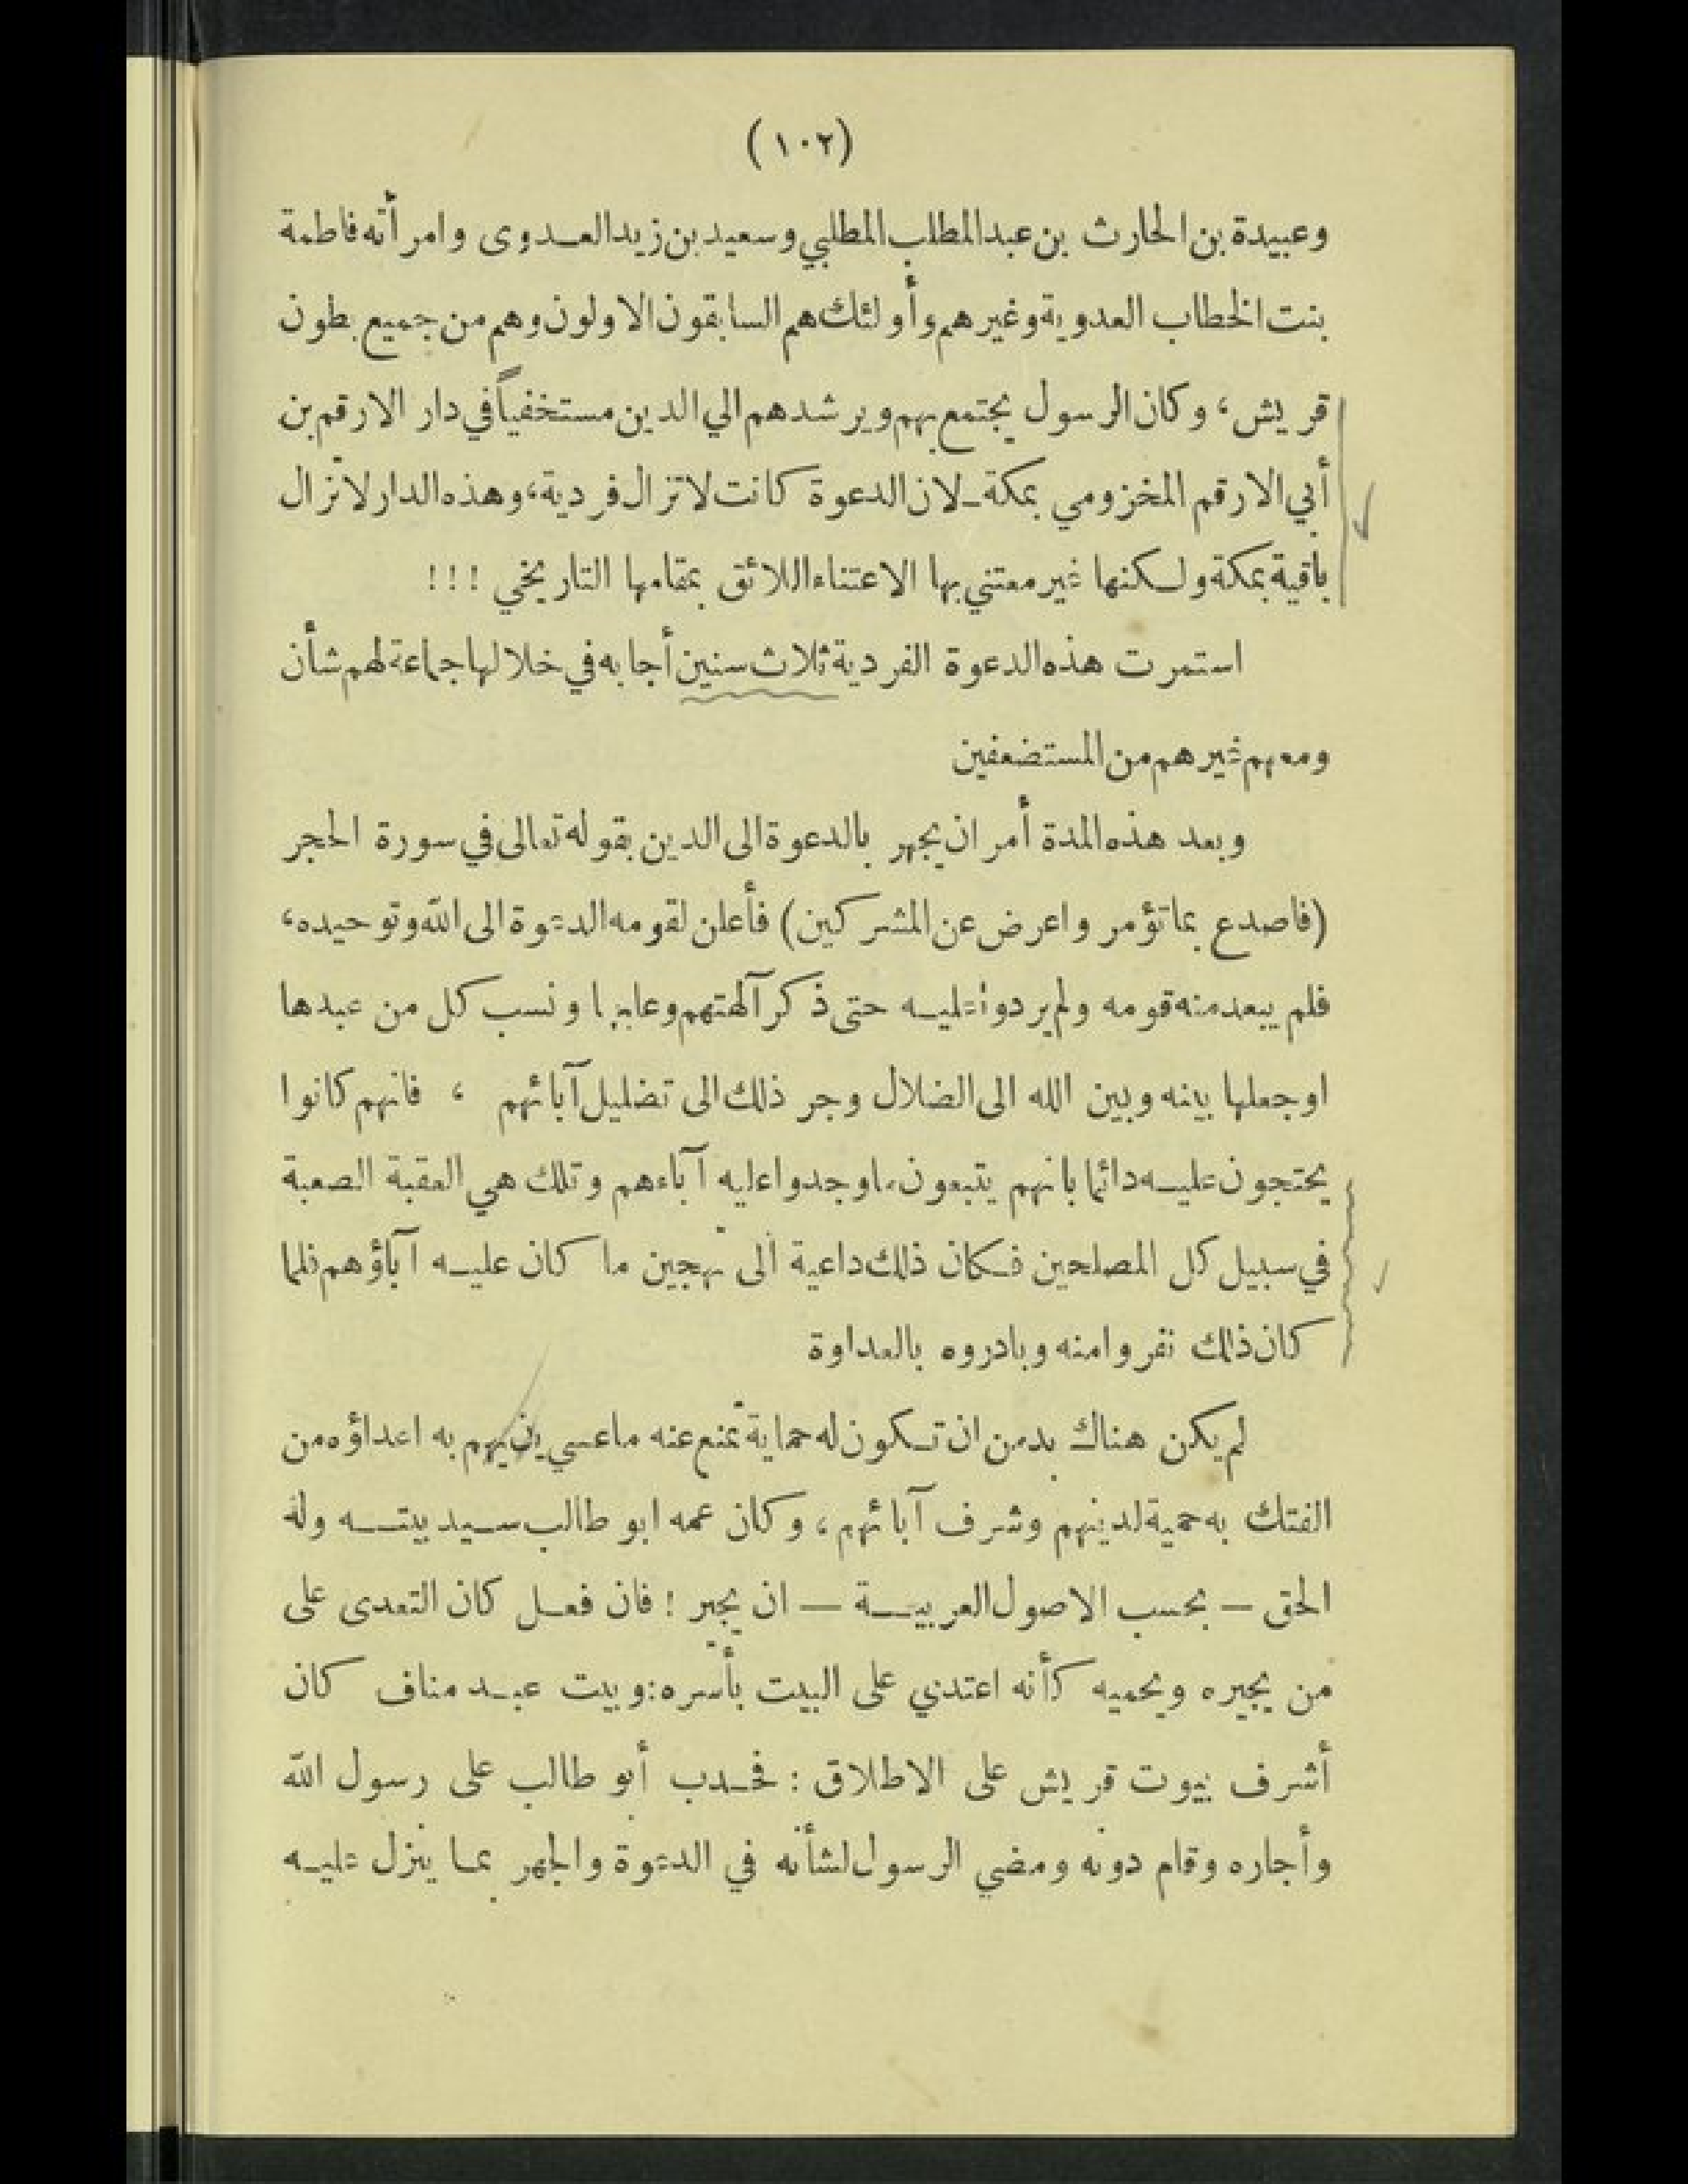 (١٠٢)
وعبيدة بن الحارث بن عبد المطلب المطلبي وسعيد بن زيد العدوى وامرأته فاطمة
بنت الخطاب العدوية وغيرهم وأولئك هم السابقون الاولون وهم من جميع بطون
قريش، وكان الرسول يجتمع بهم ويرشدهم الي الدين مستخفياً في دار الارقم بن
أبي الارقم المخزومي بمكة ـ لان الدعوة كانت لا تزال فردية، وهذه الدار لا تزال
باقية بمكة ولكنها غير معتني بها الاعتناء اللائق بمقامها التاريخي !!!
استمرت هذه الدعوة الفردية ثلاث سنين أجابه في خلالها جماعة لهم شأن
ومعهم غيرهم من المستضعفين
وبعد هذه المدة أمر ان يجهر بالدعوة الى الدين بقوله تعالى في سورة الحجر
(فاصدع بما تؤمر واعرض عن المشركين) فأعلن لقومه الدعوة الى الله وتوحيده،
فلم يبعد منه قومه ولم يردوا عليه حتى ذكر آلهتهم وعابها ونسب كل من عبدها
او جعلها بينه وبين الله الى الضلال وجر ذلك الى تضليل آبائهم ، فانهم كانوا
يحتجون عليه دائما بانهم يتبعون ما وجدوا عليه آباءهم وتلك هي العقبة الصعبة
في سبيل كل المصلحين فكان ذلك داعية الى تهجين ما كان عليه آباؤهم فلما
كان ذلك نفروا منه وبادروه بالعداوة
لم يكن هناك بد من ان تكون له حماية تمنع عنه ما عسي يهم به اعداؤه من
الفتك به حمية لدينهم وشرف آبائهم، وكان عمه ابو طالب سيد بيته وله
الحق — بحسب الاصول العربية — ان يجير ! فان فعل كان التعدى على
من يجيره ويحميه كأنه اعتدي على البيت بأسره: وبيت عبد مناف كان
أشرف بيوت قريش على الاطلاق : فحدب أبو طالب على رسول الله
وأجاره وقام دونه ومضي الرسول لشأنه في الدعوة والجهر بما ينزل عليه